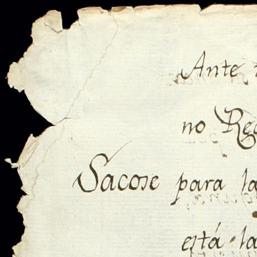 Ante
no Reg
Sacose para la
está la